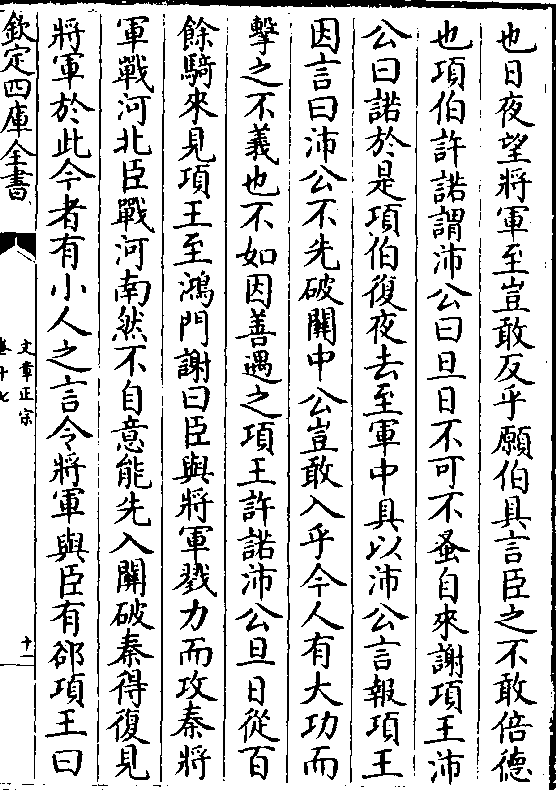 也日夜望將軍至豈敢反乎願伯具言臣之不敢倍德
也項伯許諾謂沛公曰旦日不可不蚤自來謝項王沛
公曰諾於是項伯復夜去至軍中具以沛公言報項王
因言曰沛公不先破關中公豈敢入乎今人有大功而
擊之不義也不如因善遇之項王許諾沛公旦日從百
餘騎來見項王至鴻門謝曰臣與將軍戮力而攻秦將
軍戰河北臣戰河南然不自意能先入關破秦得復見
將軍於此今者有小人之言令將軍與臣有郤項王曰
欽定四庫全書
文章正宗
卷十七
十一